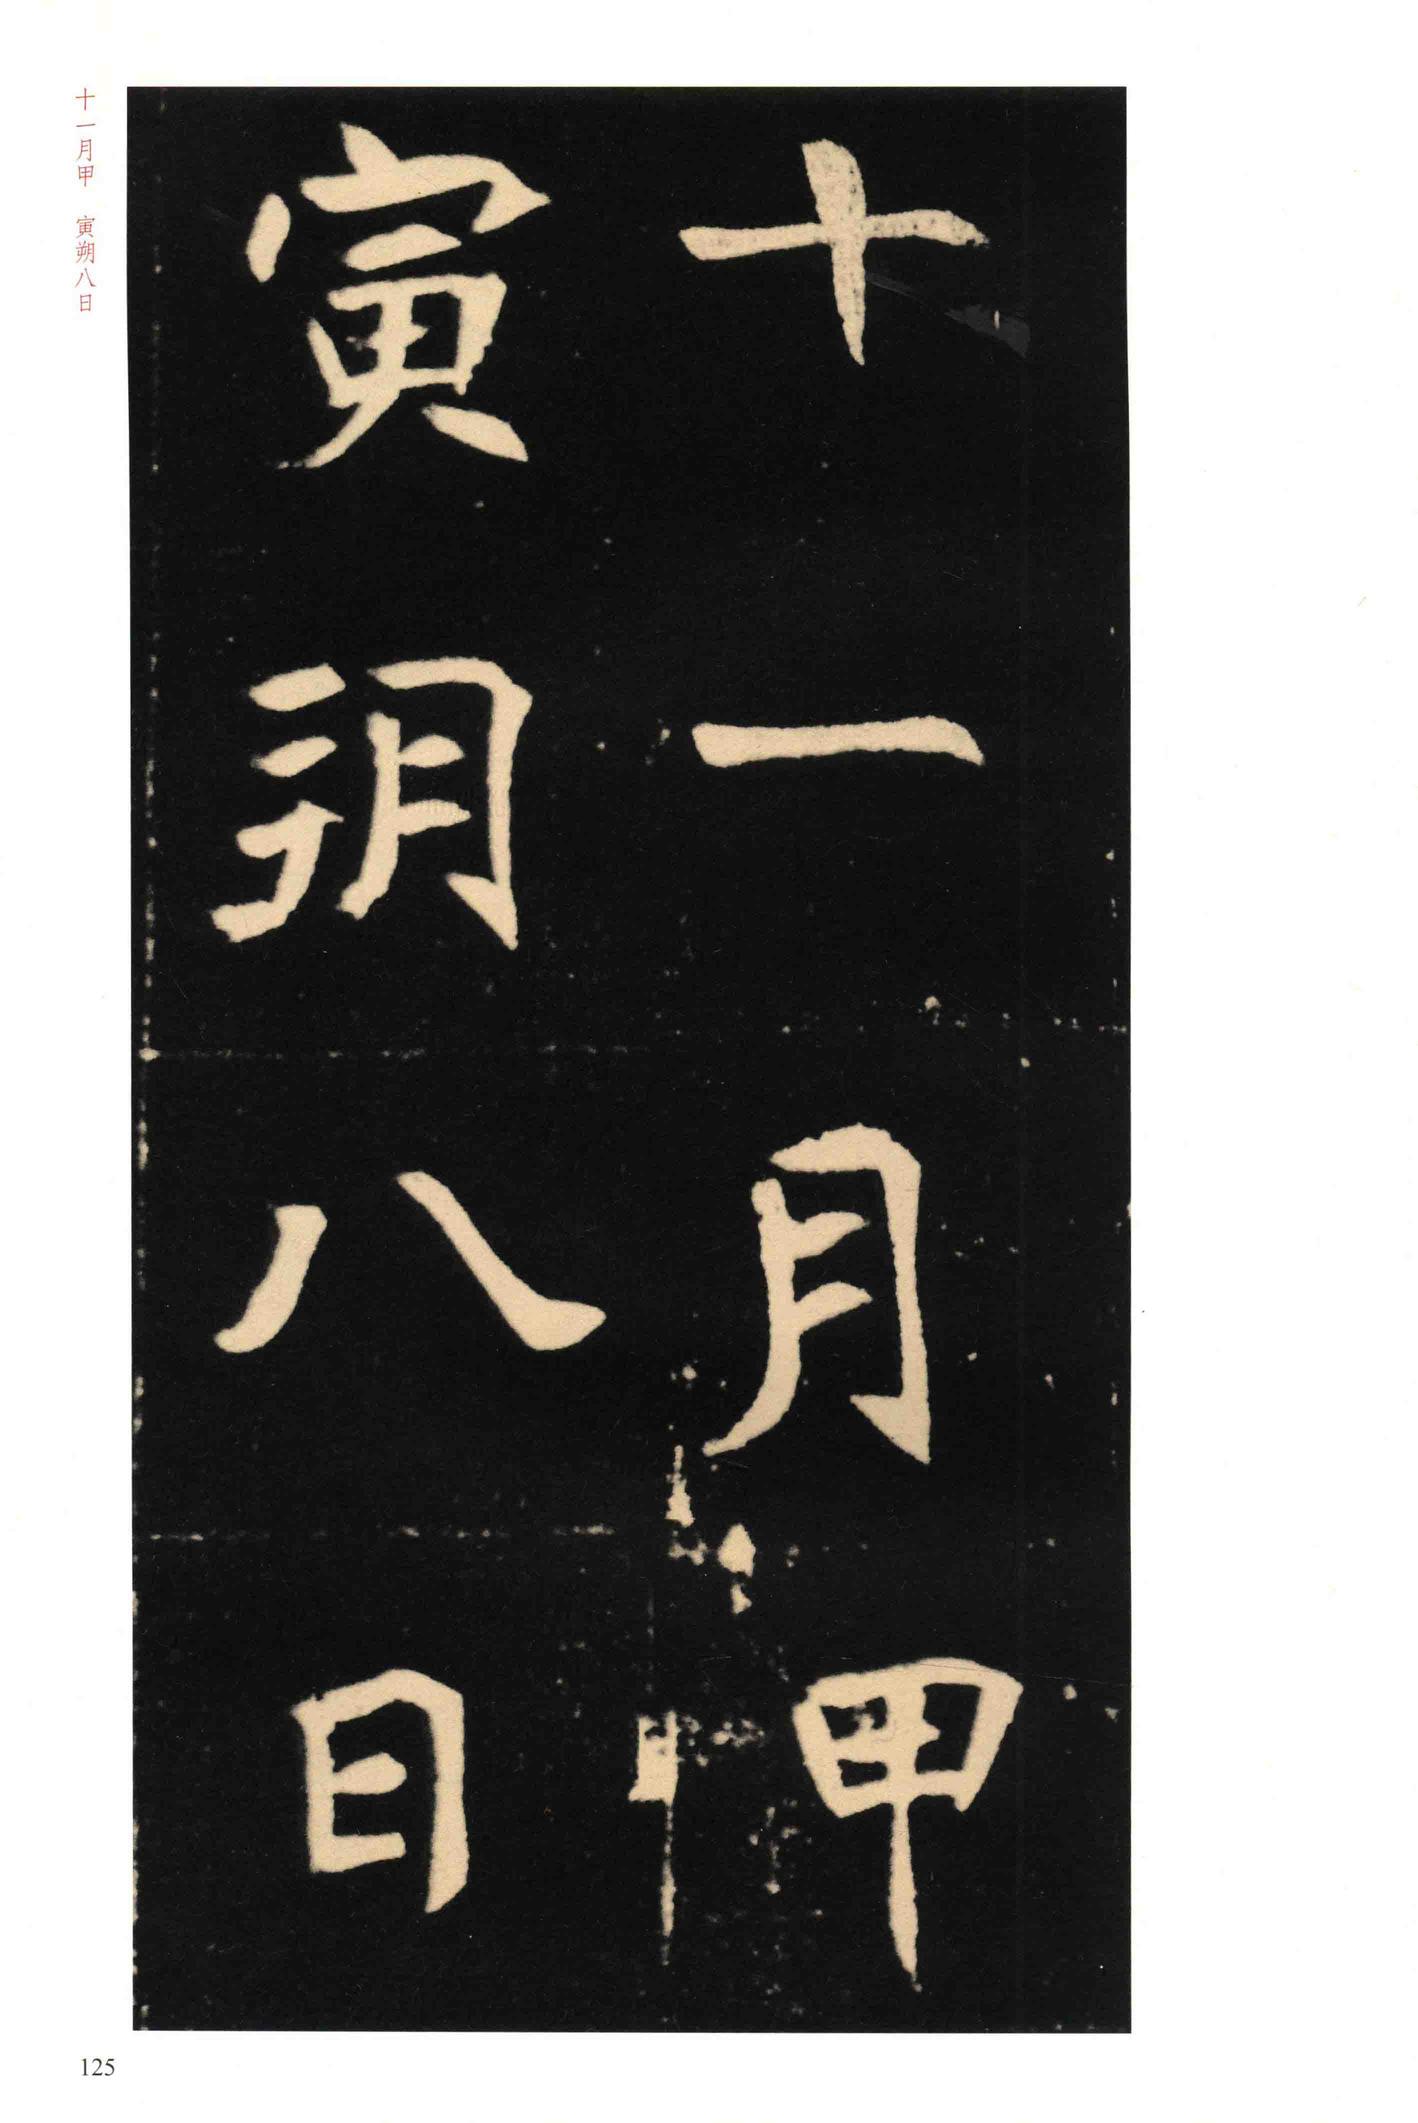 十一月甲
寅朔八日
十一月甲 寅朔八日
125